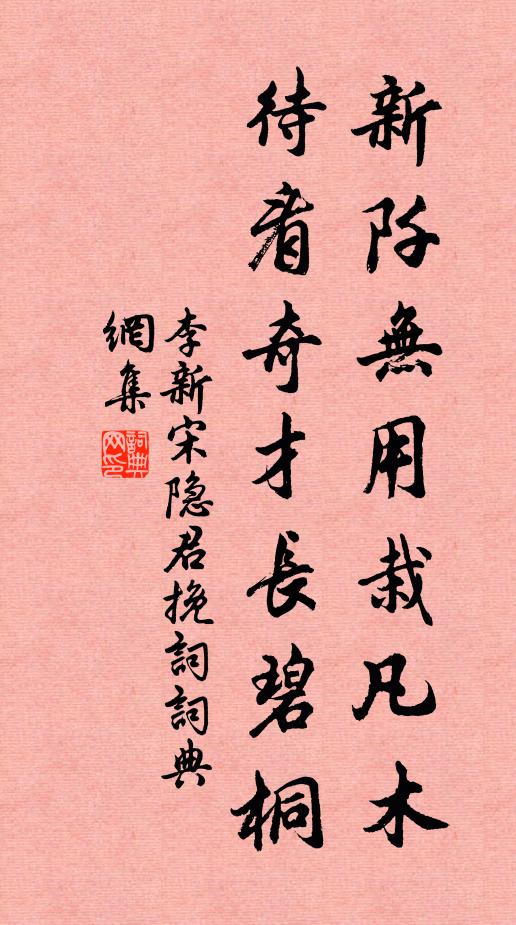 新阡無用栽凡木
待看奇才長碧桐
李新宋隐君挽詞詞典
網集
詞典
网印